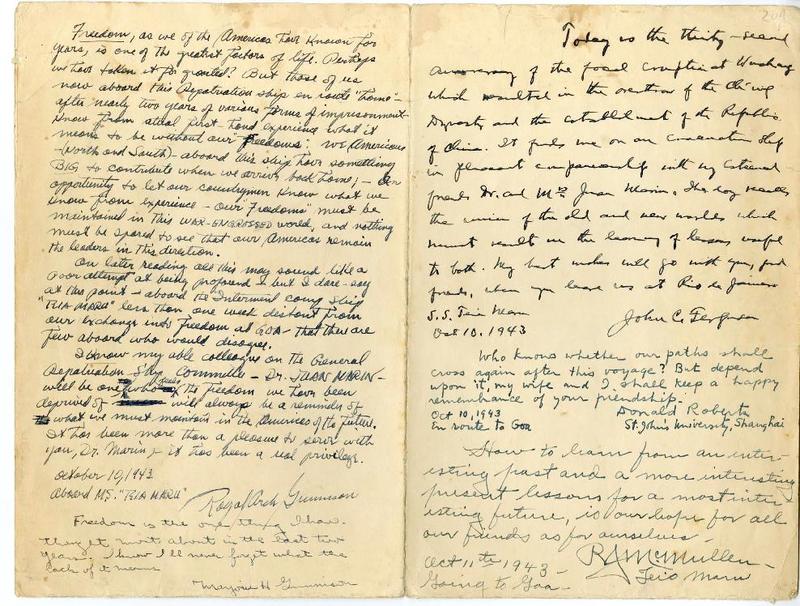 Freedom, as we of the Americas have known for
years, is one of the greatest factors of life. Perhaps
we have taken it for granted? But those of us
now aboard this Repatriation ship en route "home"-
after nearly two years of various forms of imprisonment-
know from actual first hand experience what it
means to be without our freedoms. We Americans
-(North and South)- aboard this ship have something
BIG to contribute when we arrive back home; - Our
opportunity to let our countrymen know what we
know from experience - Our "Freedoms" must be
maintained in this WAR-ENGROSSED world, and nothing
must be spared to see that our Americas remain
the leaders in this direction.
On later reading all this may sound like a
poor attempt at being profound, but I dare-say
at this point - aboard the Internment camp ship
"TEIA MARU" less than one week distant from
our exchange into freedom at GOA - that there are
few aboard who would disagree.
I know my able colleague on the General
Repatriation Ship Committee - Dr. JUAN MARIN -
will be one who the freedom we have been
deprived of will always be a reminder of
what we must maintain in the Americas of the future.
It has been more than a pleasure to serve with
you, Dr. Marin, - it has been a real privilege.
October 10, 1943
Aboard M.S. "TEIA MARU"
Royal Arch Gunnison
Freedom is the one thing I have
thought most about in the last two
years. I know I'll never forget what the
lack of it means
Marjorie H. Gunnison
204
Today is the thirty-second
anniversary of the at Wuchang
which resulted in the overthrow of the Ch'ing
Dynasty and the establishment of the Republic
of China. It finds me on an ship
in pleasant companionship with my esteemed
friends Dr. and Mrs. Juan Marin.
the union of the old and new worlds which
must result in the learning of lessons useful
to both. My best wishes will go with you, good
friends, when you leave us at Rio de Janeiro
S.S. Teia Maru
Oct 10, 1943
John C. Ferguson
Who knows whether our paths shall
cross again after this voyage? But depend
upon it, my wife and I shall keep a happy
remembrance of your friendship.
Oct 10, 1943
Donald Roberts
En route to Goa
St. John's University, Shanghai
How to learn from an inter-
esting past and a more interesting
present lessons for a most inter-
esting future, is our hope for all
our friends as for ourselves -
R A McMullen -
Oct 11th 1943 -
Teio Maru
Going to Goa -